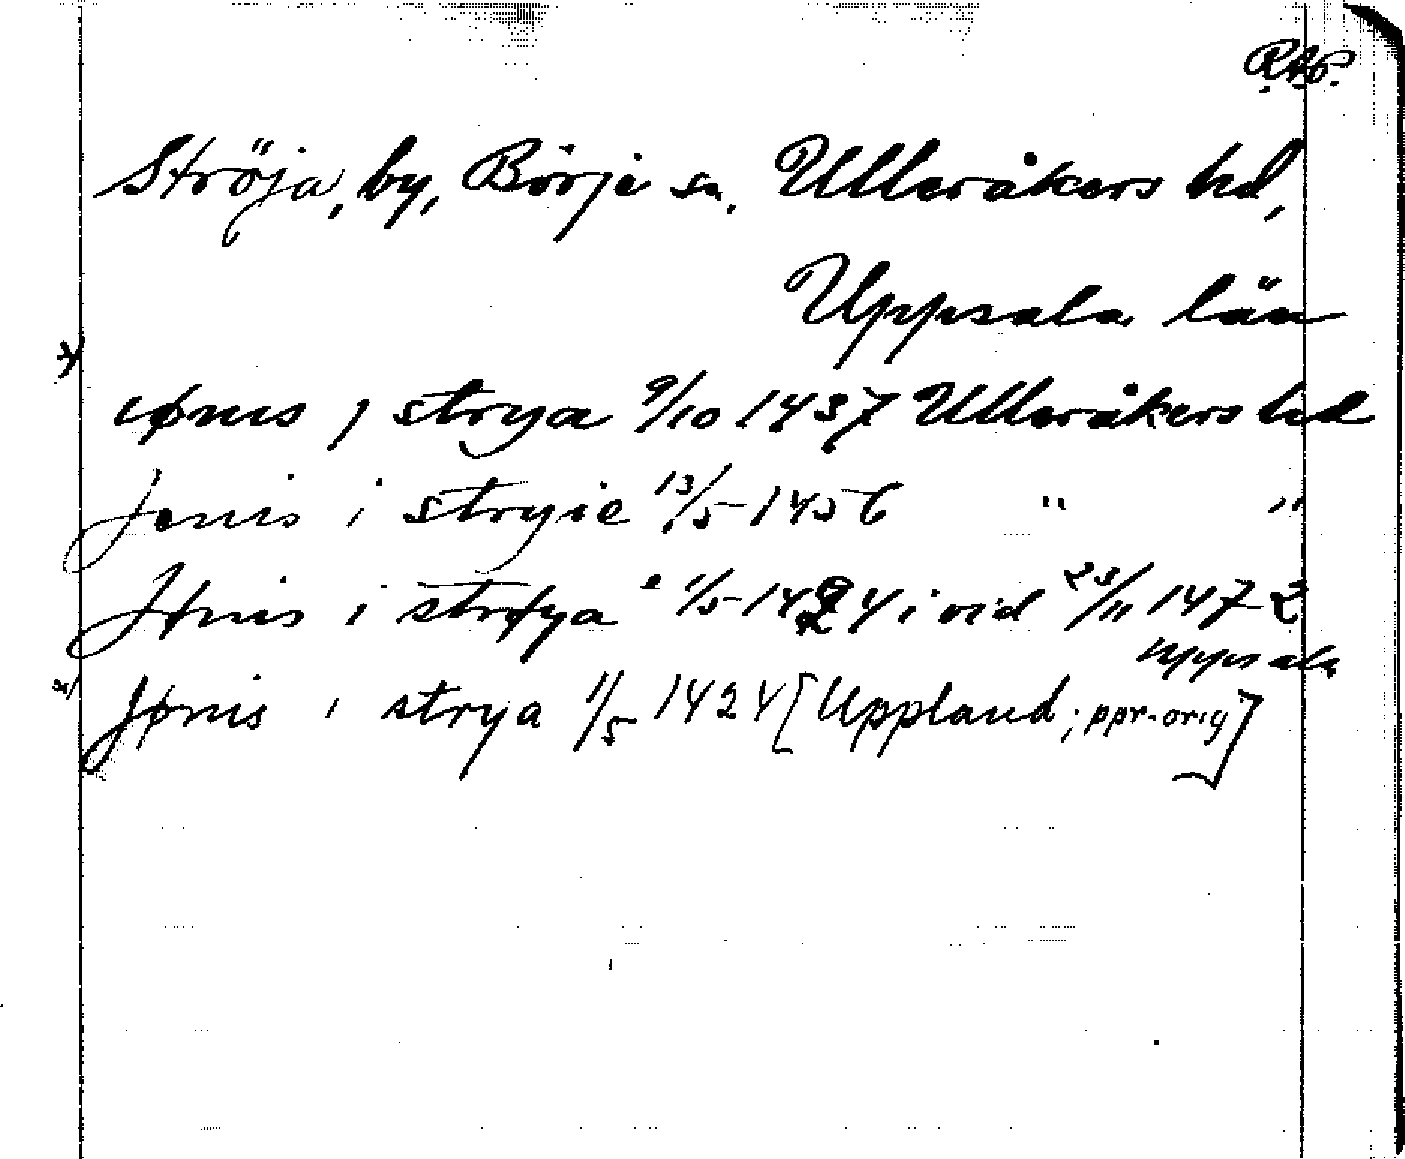 RAP.
Ströja, by, Börje sn. Ulleråkers hd,
Uppsala län
ϕnis j strya 9/10 1437 Ulleråkers hd
Jenis i stryie 13/5 1456 " "
Jϕnis i strϕya 1/5 1424 i vid 23/11 1472
Uppsala
2/ Jϕnis i strya 1/5 1424 [Uppland; ppr.orig]